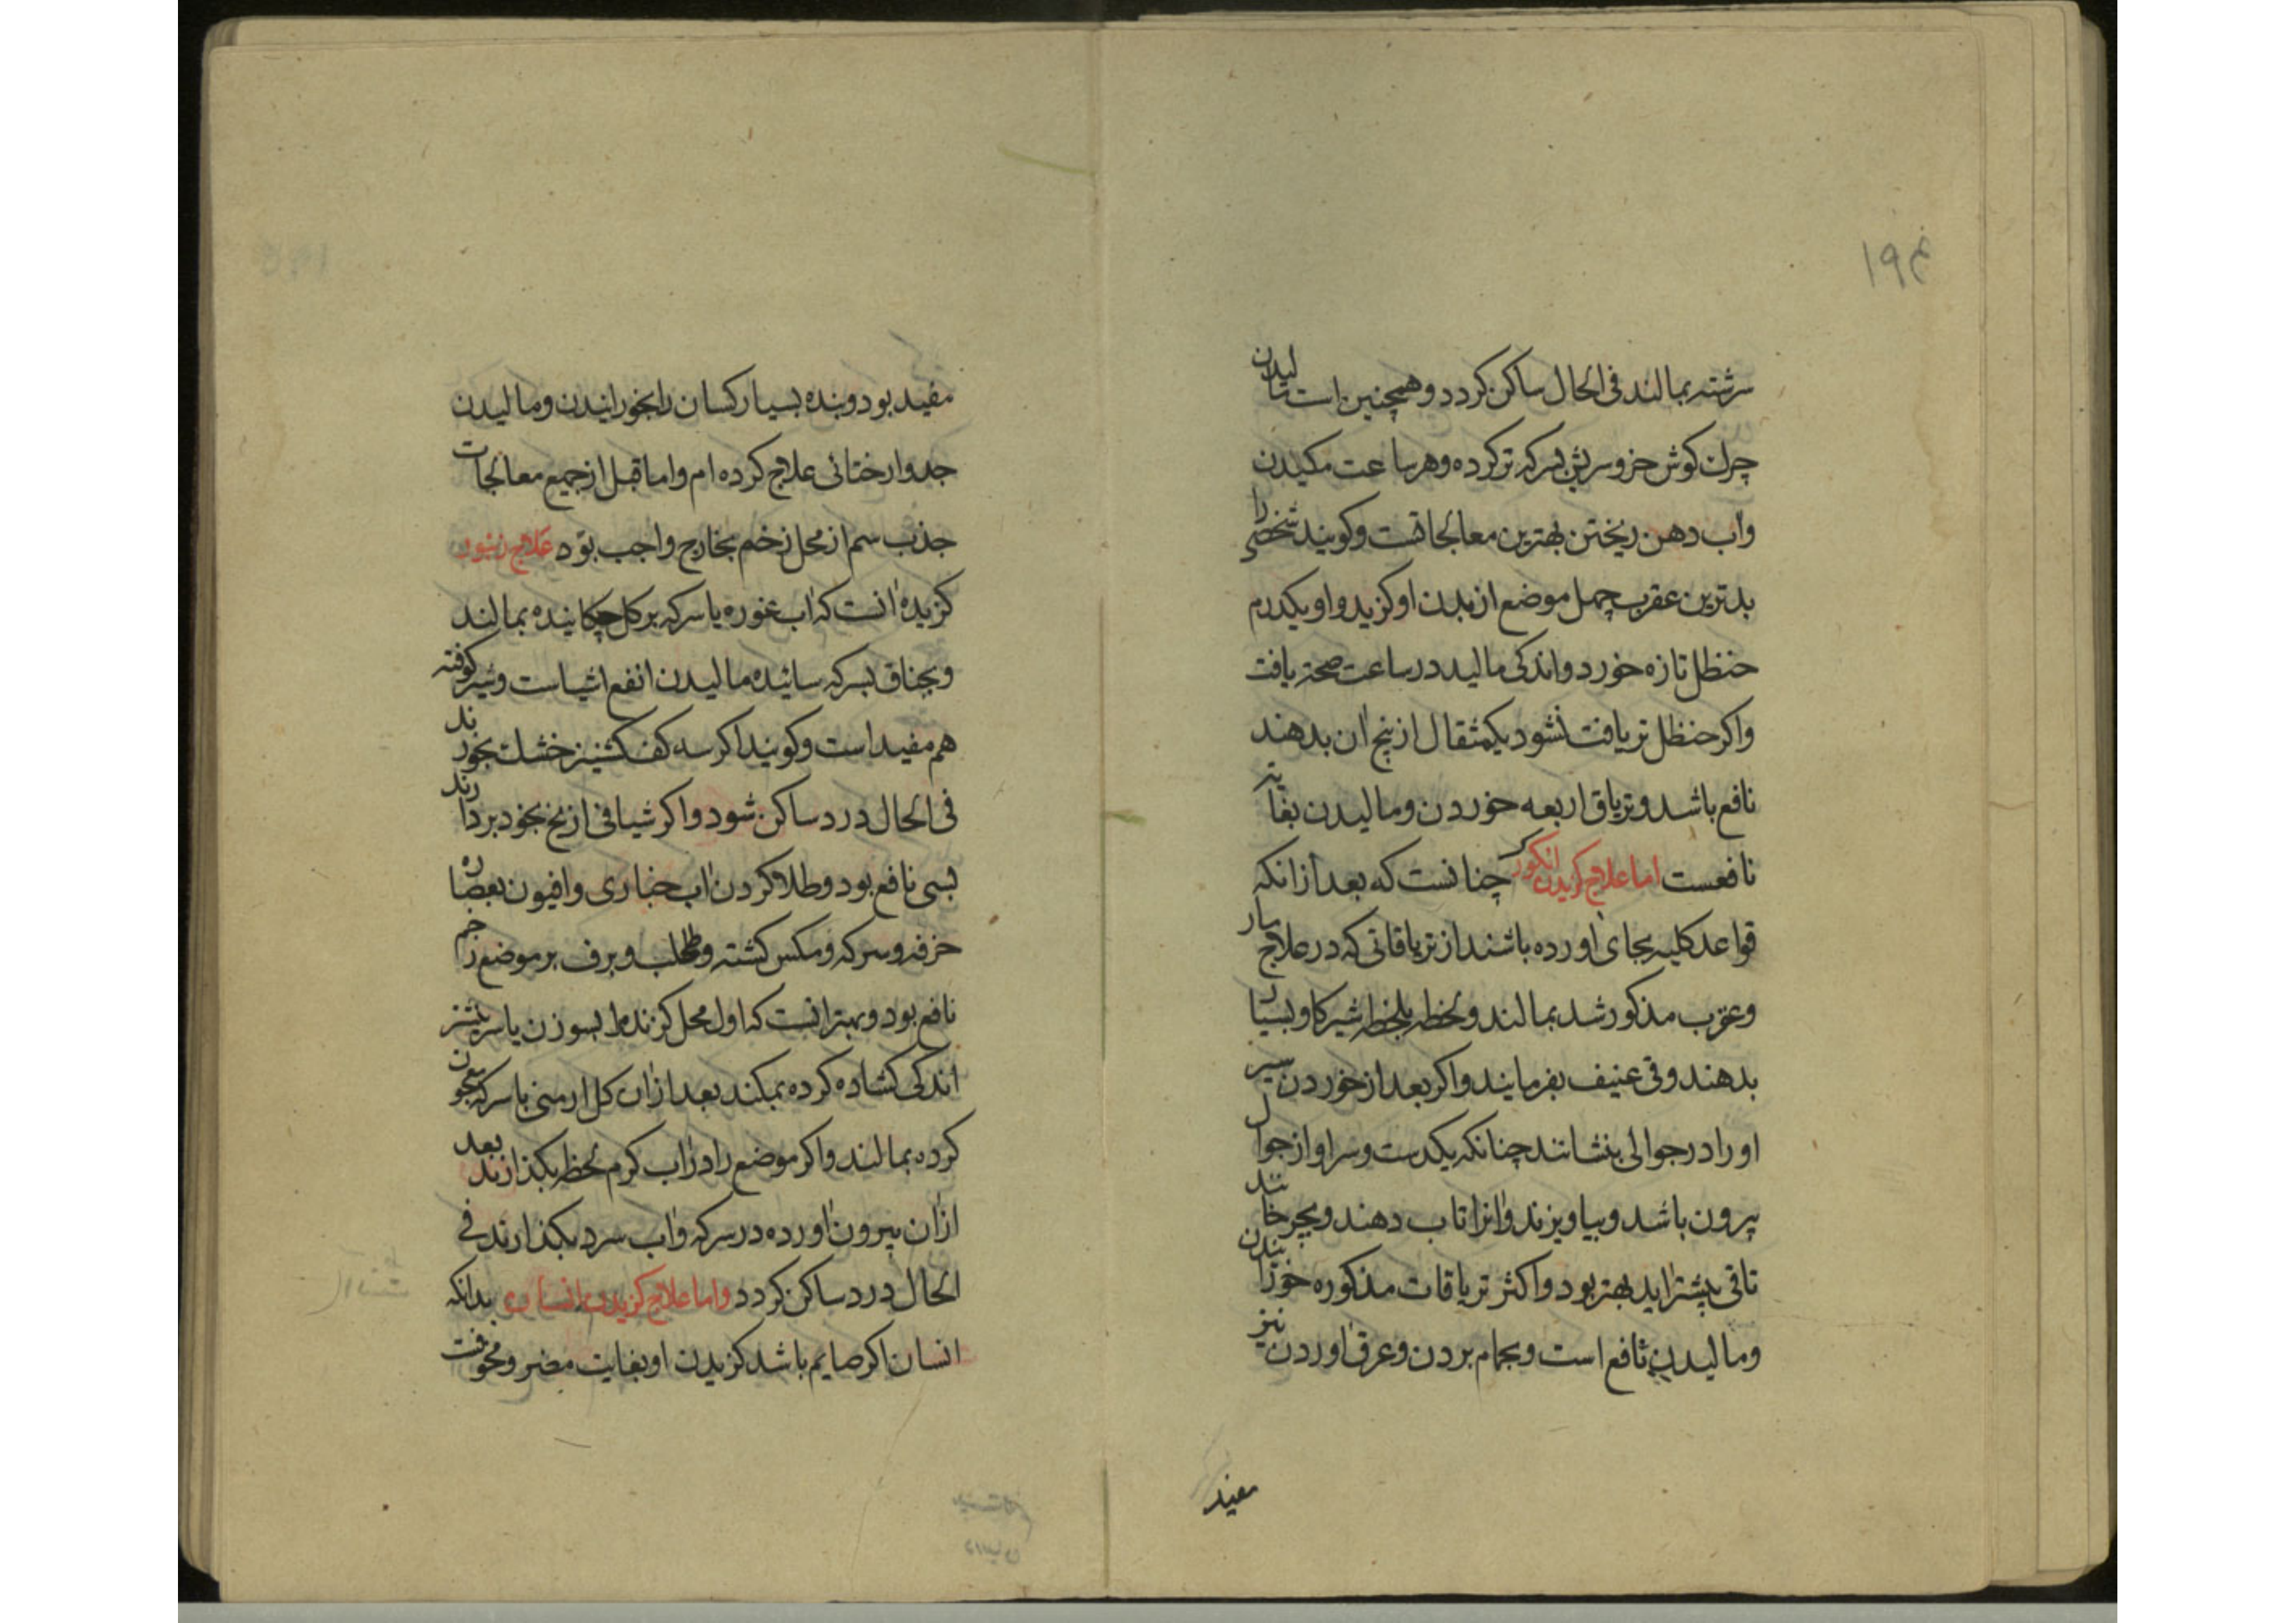 سرشته بمالند فی الحال ساکن کردد و همچنین است مالیدن
چرک کوش خر و سریش بسرکه تر کرده و هر ساعت مکیدن
واب دهن ریختن بهترین معالجاتست و کویند شخصی را
بدترین عقرب چهل موضع از بدن او کزید و او یکدرم
حنظل تازه خورد و اندکی مالید در ساعت صحة یافت
واکر حنظل تر یافت نشود یکمثقال از بیخ ان بدهند
نافع باشد و تریاق اربعه خوردن و مالیدن بغایة
نافعست اما علاج کزیدن انکورک چنانست که بعد از انکه
قواعد کلیه بجای اورده باشند از تریاقاتی که در علاج مار
وعقرب مذکور شد بمالند و لحظه بلحظه شیر کاو بسیار
بدهند و قی عنیف بفرمایند واکر بعد از خوردن سیر
او را در جوالی بنشانند چنانکه یکدست و سر او از جوال
بیرون باشد و بیاویزند وانرا تاب دهند و بچرخانند
تا قی بیشتر اید بهتر بود و اکثر تریاقات مذکوره خورانیدن
و مالیدن نافع است و بحمام بردن و عرق اوردن نیز
مفید
مفید بود و بنده بسیار کسان را بخورانیدن و مالیدن
جدوار ختائی علاج کرده ام و اما قبل از جمیع معالجات
جذب سم از محل زخم بخارج واجب بود علاج زنبور
کزیده انست که اب غوره یا سرکه بر کل چکانیده بمالند
و بجناق بسرکه سائیده مالیدن انفع اشیاست و سیر کوفته
هم مفید است و کویند اکر سه کف کشنیز خشک بخورند
فی الحال درد ساکن شود واکر شیافی از یخ بخود بردارند
بسی نافع بود و طلا کردن اب خبازی و افیون بعصاره
خرفه و سرکه و مکس کشته و طحلب و برف بر موضع زخم
نافع بود و بهتر انست که اول محل کزنده را بسوزن یا سر نیشتر
اندکی کشاده کرده بمکند بعد از ان کل ارمنی با سرکه معجون
کرده بمالند واکر موضع را در اب کرم لحظه بکذارند بعد
از ان بیرون اورده در سرکه واب سرد بکذارند فی
الحال درد ساکن کردد واما علاج کزیدن انسان بدانکه
انسان اکر صایم باشد کزیدن او بغایت مضر و مخوفست